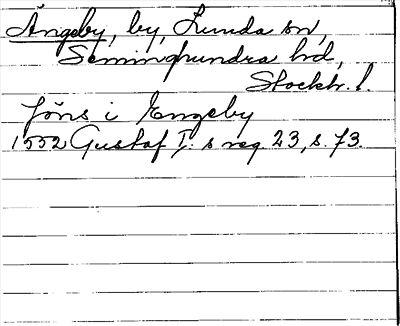 Ängeby, by, Lunda sn,
Seminghundra hd,
Stockh. l.
Jöns i Engeby
1552 Gustaf I:s reg. 23, s. 73.